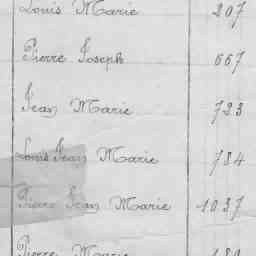 Louis Marie 207
Pierre Joseph 667
Jean Marie 723
Louis Jean Marie 784
Pierre Jean Marie 1037
Pierre Marie 189